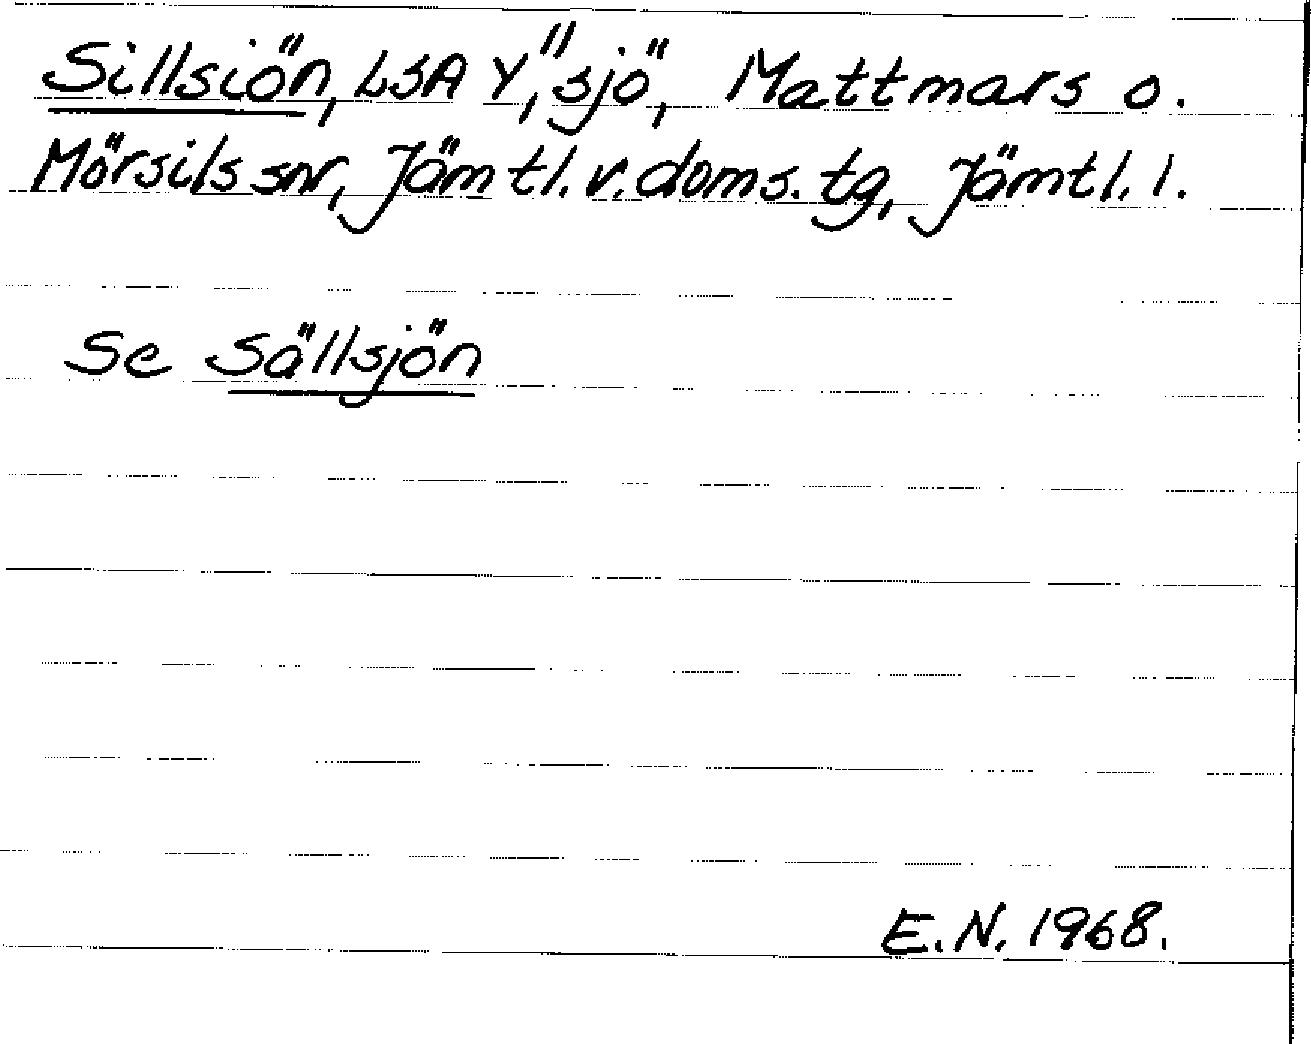 Sillsiön, LSA Y", sjö, Mattmars o.
Mörsils snr, Jämtl. v. doms. tg, Jämtl. l.
Se Sällsjön
E.N. 1968.